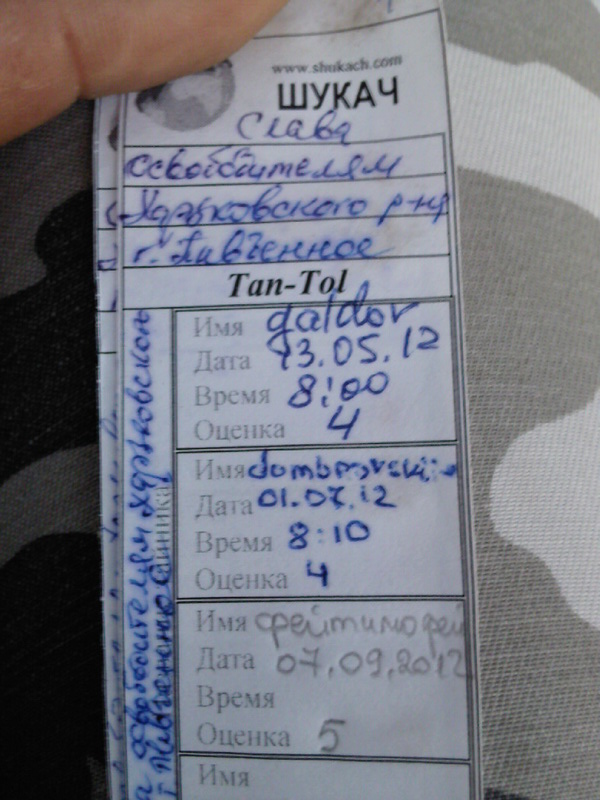 www.shukach.com
ШУКАЧ
Слава
освободителям
Харьковского р-на
г. Пивденное
Tan-Tol
Имя galdor
Дата 13.05.12
Время 8:00
Оценка 4
Имя dombrovskij
Дата 01.07.12
Время 8:10
Оценка 4
Имя
Дата 07.09.2012
Время
Оценка 5
Имя
освободителям Харьковского